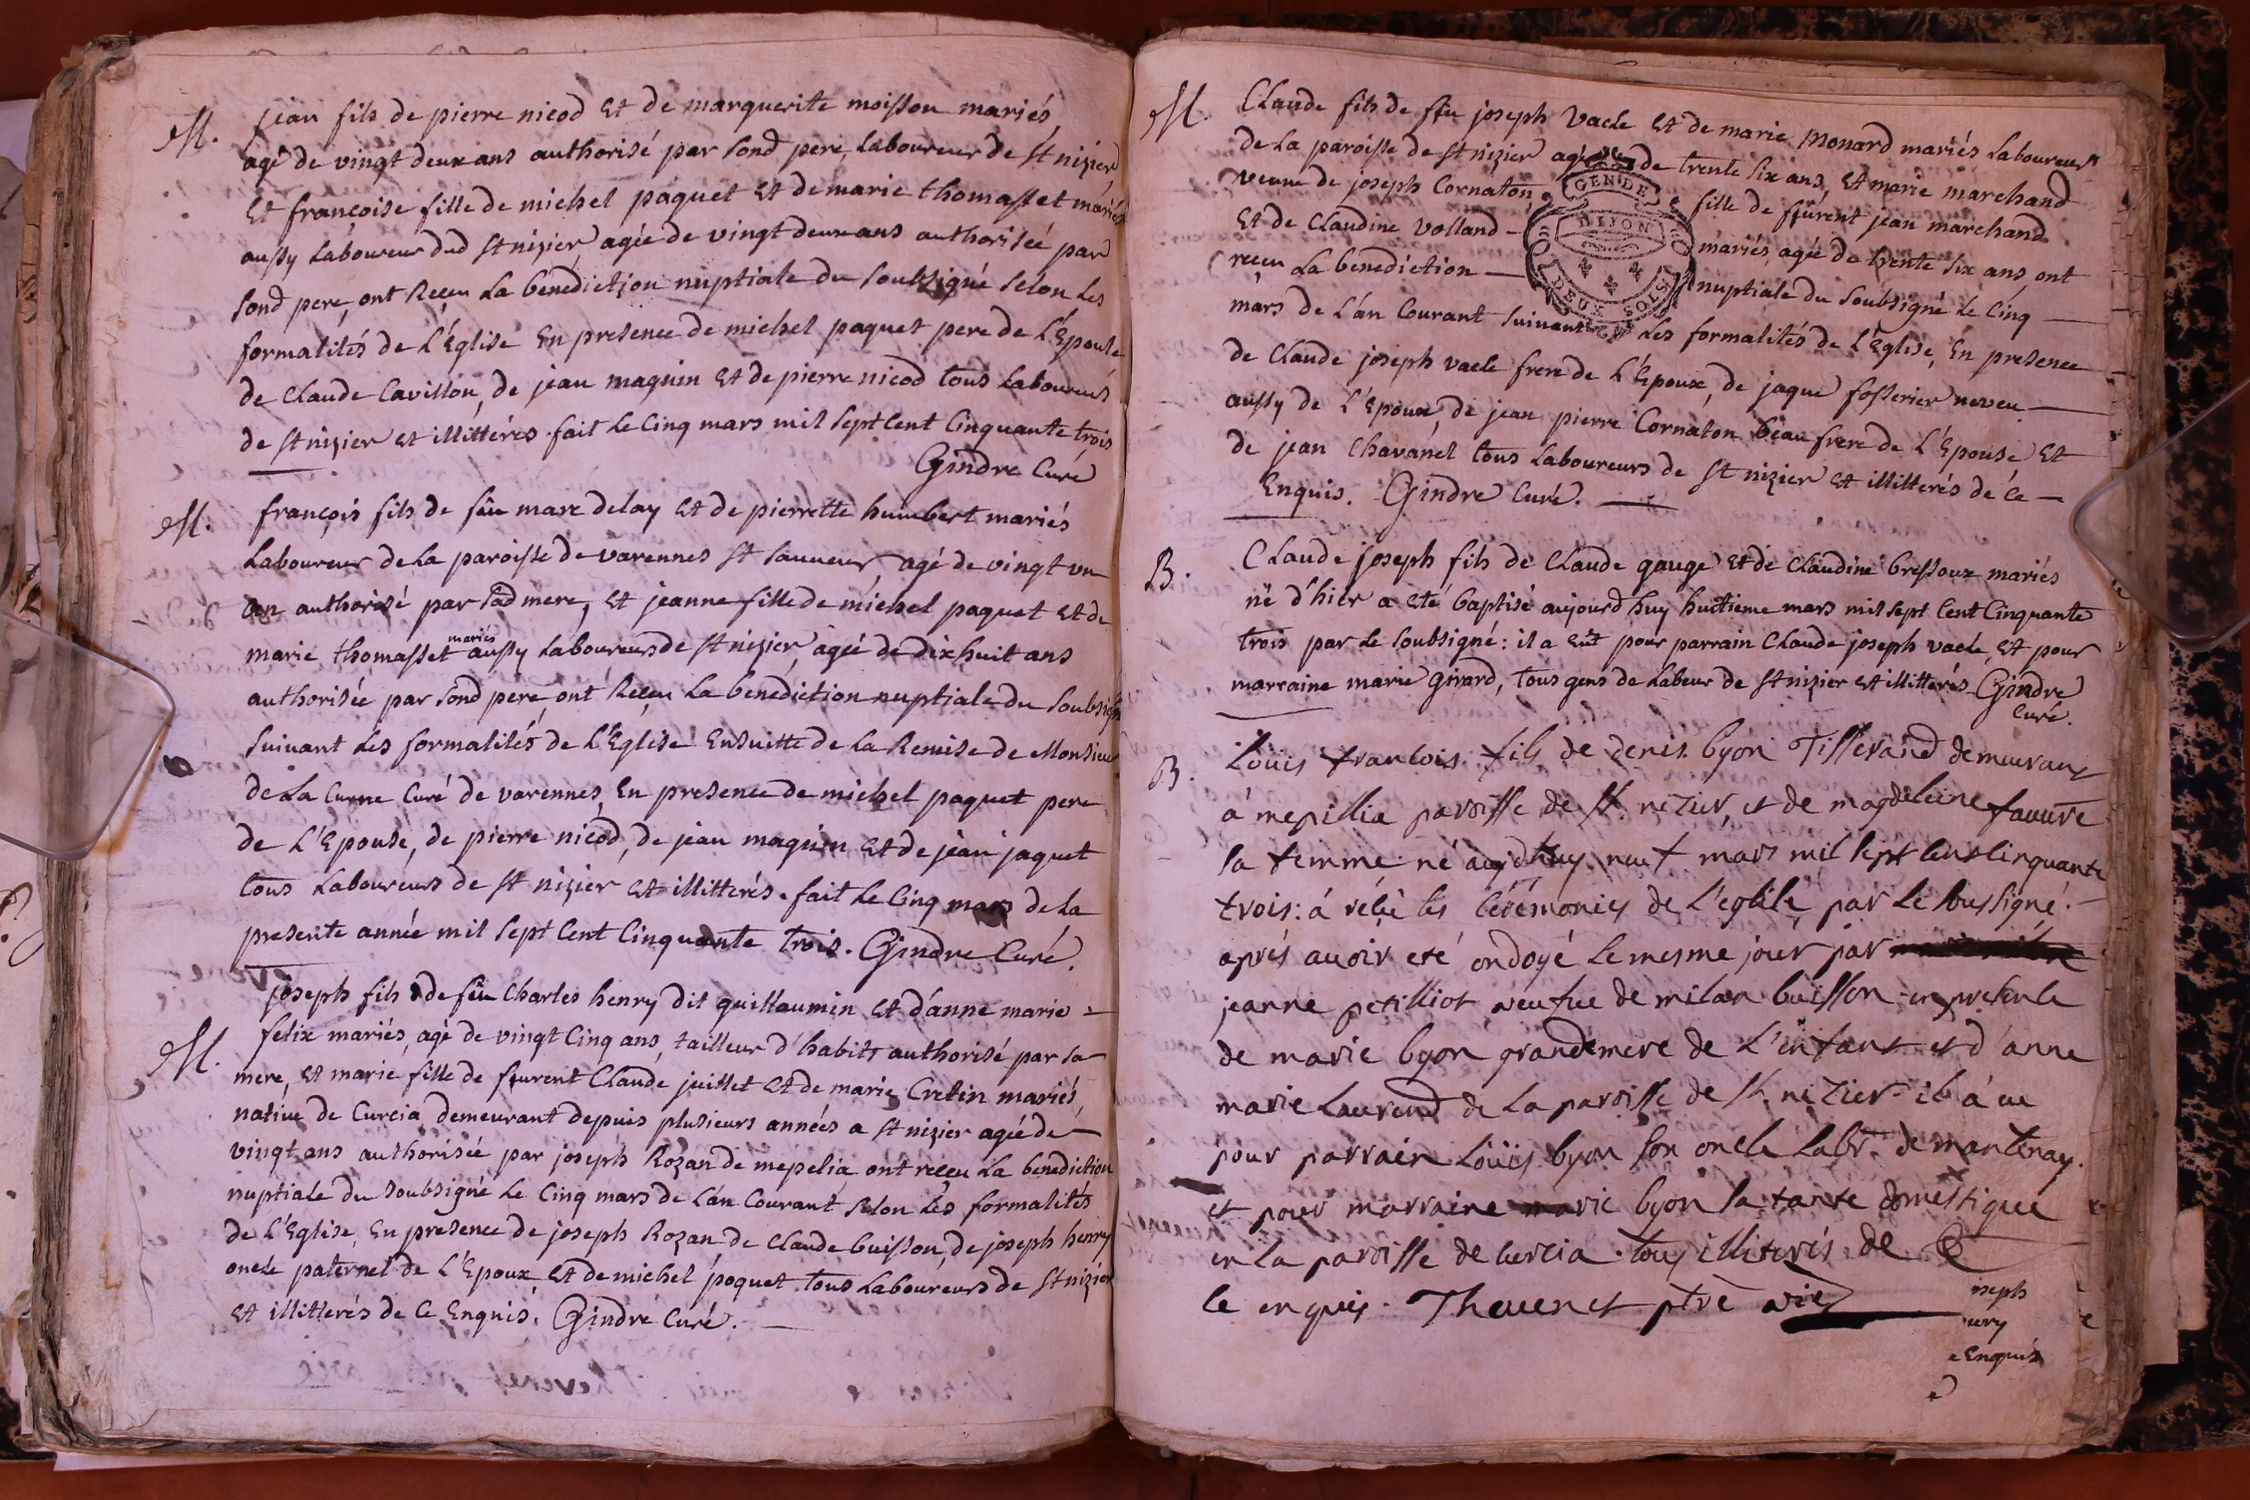 M. jean fils de pierre nicod Et de marguerite moisson mariés
agé de vingt deux ans authorisé par sond pere, Laboureur de St nizier
Et françoise fille de michel paquet Et de marie thomasset mariés
aussy Laboureur dud St nizier agée de vingt deux ans authorisée par
sond pere, ont Receu La benediction nuptiale du soubsigné selon Les
formalités de L'Eglise En presence de michel paquet pere de L'Epouse
de Claude Cavillon, de jean maquin Et de pierre nicod tous Laboureurs
de St nizier Et illittérés. fait Le Cinq mars mil sept Cent Cinquante trois
Gindre Curé
M. françois fils de feu marc delay Et de pierrette humbert mariés
Laboureur de La paroisse de varennes St sauveur agé de vingt un
an authorisé par sad mere, Et jeanne fille de michel paquet Et de
marie thomasset mariés aussy Laboureurs de St nizier agée de dixhuit ans
authorisée par sond pere ont Receu La benediction nuptiale du soubsigné
suivant Les formalités de L'Eglise Ensuitte de La Remise de Monsieur
de La Curne Curé de varennes, En presence de michel paquet pere
de L'Epouse, de pierre nicod, de jean maquin Et de jean jaquet
tous Laboureurs de St nizier Et illitterés. fait Le Cinq mars de La
presente année mil sept Cent Cinquante trois. Gindre Curé.
joseph fils de feu Charles henry dit guillaumin Et d'anne marie
M. felix mariés, agé de vingt Cinq ans, tailleur d'habits authorisé par sa
mere, Et marie fille de feurent Claude juillet Et de marie Cretin mariés
native de Curcia demeurant depuis plusieurs années a St nizier agée de
vingt ans authorisée par joseph Rozan de mepelia ont receu La benediction
nuptiale du soubsigné Le Cinq mars de L'an Courant selon Les formalités
de L'Eglise, En presence de joseph Rozan, de Claude buisson, de joseph henry
oncle paternel de L'Epoux Et de michel poquet tous Laboureurs de St nizier
Et illitterés de Ce Enquis. Gindre Curé.
M. Claude fils de feu joseph vacle Et de marie Monard mariés Laboureurs
de La paroisse de St nizier agé de trente six ans, Et marie marchand
veuve de joseph Cornaton fille de feurent jean marchand
Et de Claudine volland mariés, agée de trente six ans, ont
receu La benediction nuptiale du soubsigné Le Cinq
mars de L'an Courant suivant Les formalités de L'Eglise, En presence
GEN DE
DIJON
DEUX SOLS
de Claude joseph vacle frere de L'Epoux, de jaque fosserier neveu
aussy de L'Epoux, de jean pierre Cornaton beau frere de L'Epouse Et
de jean Chavanel tous Laboureurs de St nizier Et illitterés de Ce
Enquis. Gindre Curé.
B. Claude joseph fils de Claude gauge Et de Claudine bressoux mariés
né d'hier a Eté baptisé aujourd huy huitieme mars mil sept Cent Cinquante
trois par Le soubsigné: il a Eut pour parrain Claude joseph vacle, Et pour
marraine marie Girard, tous gens de Labeur de St nizier Et illitterés. Gindre
Curé.
B. Loüis francois fils de denis byon Tisserand demeurant
à mepillia paroisse de St. nezier, et de magdeleine fauure
sa femme né aujdhuy neuf mars mil sept cens cinquante
trois: à réçu les cérémonies de L'eglise par le soussigné.
aprés auoir eté ondoyé le mesme jour par
jeanne petilliot veufue de milan buisson en presence
de marie byon grandemere de L'enfant et d'anne
marie Laurend de La paroisse de St. nezier. il à eu
pour parrain Loüis byon son oncle Labr. de mantenay.
et pour marraine marie byon sa tante domestique
en La paroisse de curcia. tous illiterés de
ce enquis. Thevenet ptre vic
oseph
ury
e Enquis